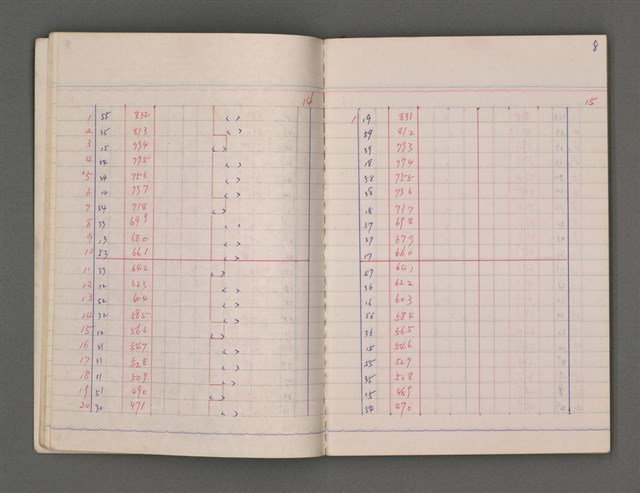 14
1 55 832
2 35 813
3 15 794
4 775
5 756
6 737
7 54 718
8 33 699
9 13 680
10 53 661
11 33 642
12 12 623
13 52 604
14 32 585
15 12 566
16 547
17 528
18 11 509
19 51 490
20 30 471
8
15
1 19 831
59 812
39 793
18 774
58 755
38 736
18 717
57 698
37 679
17 660
57 641
36 622
16 603
56 584
36 565
15 546
55 527
35 508
15 489
470